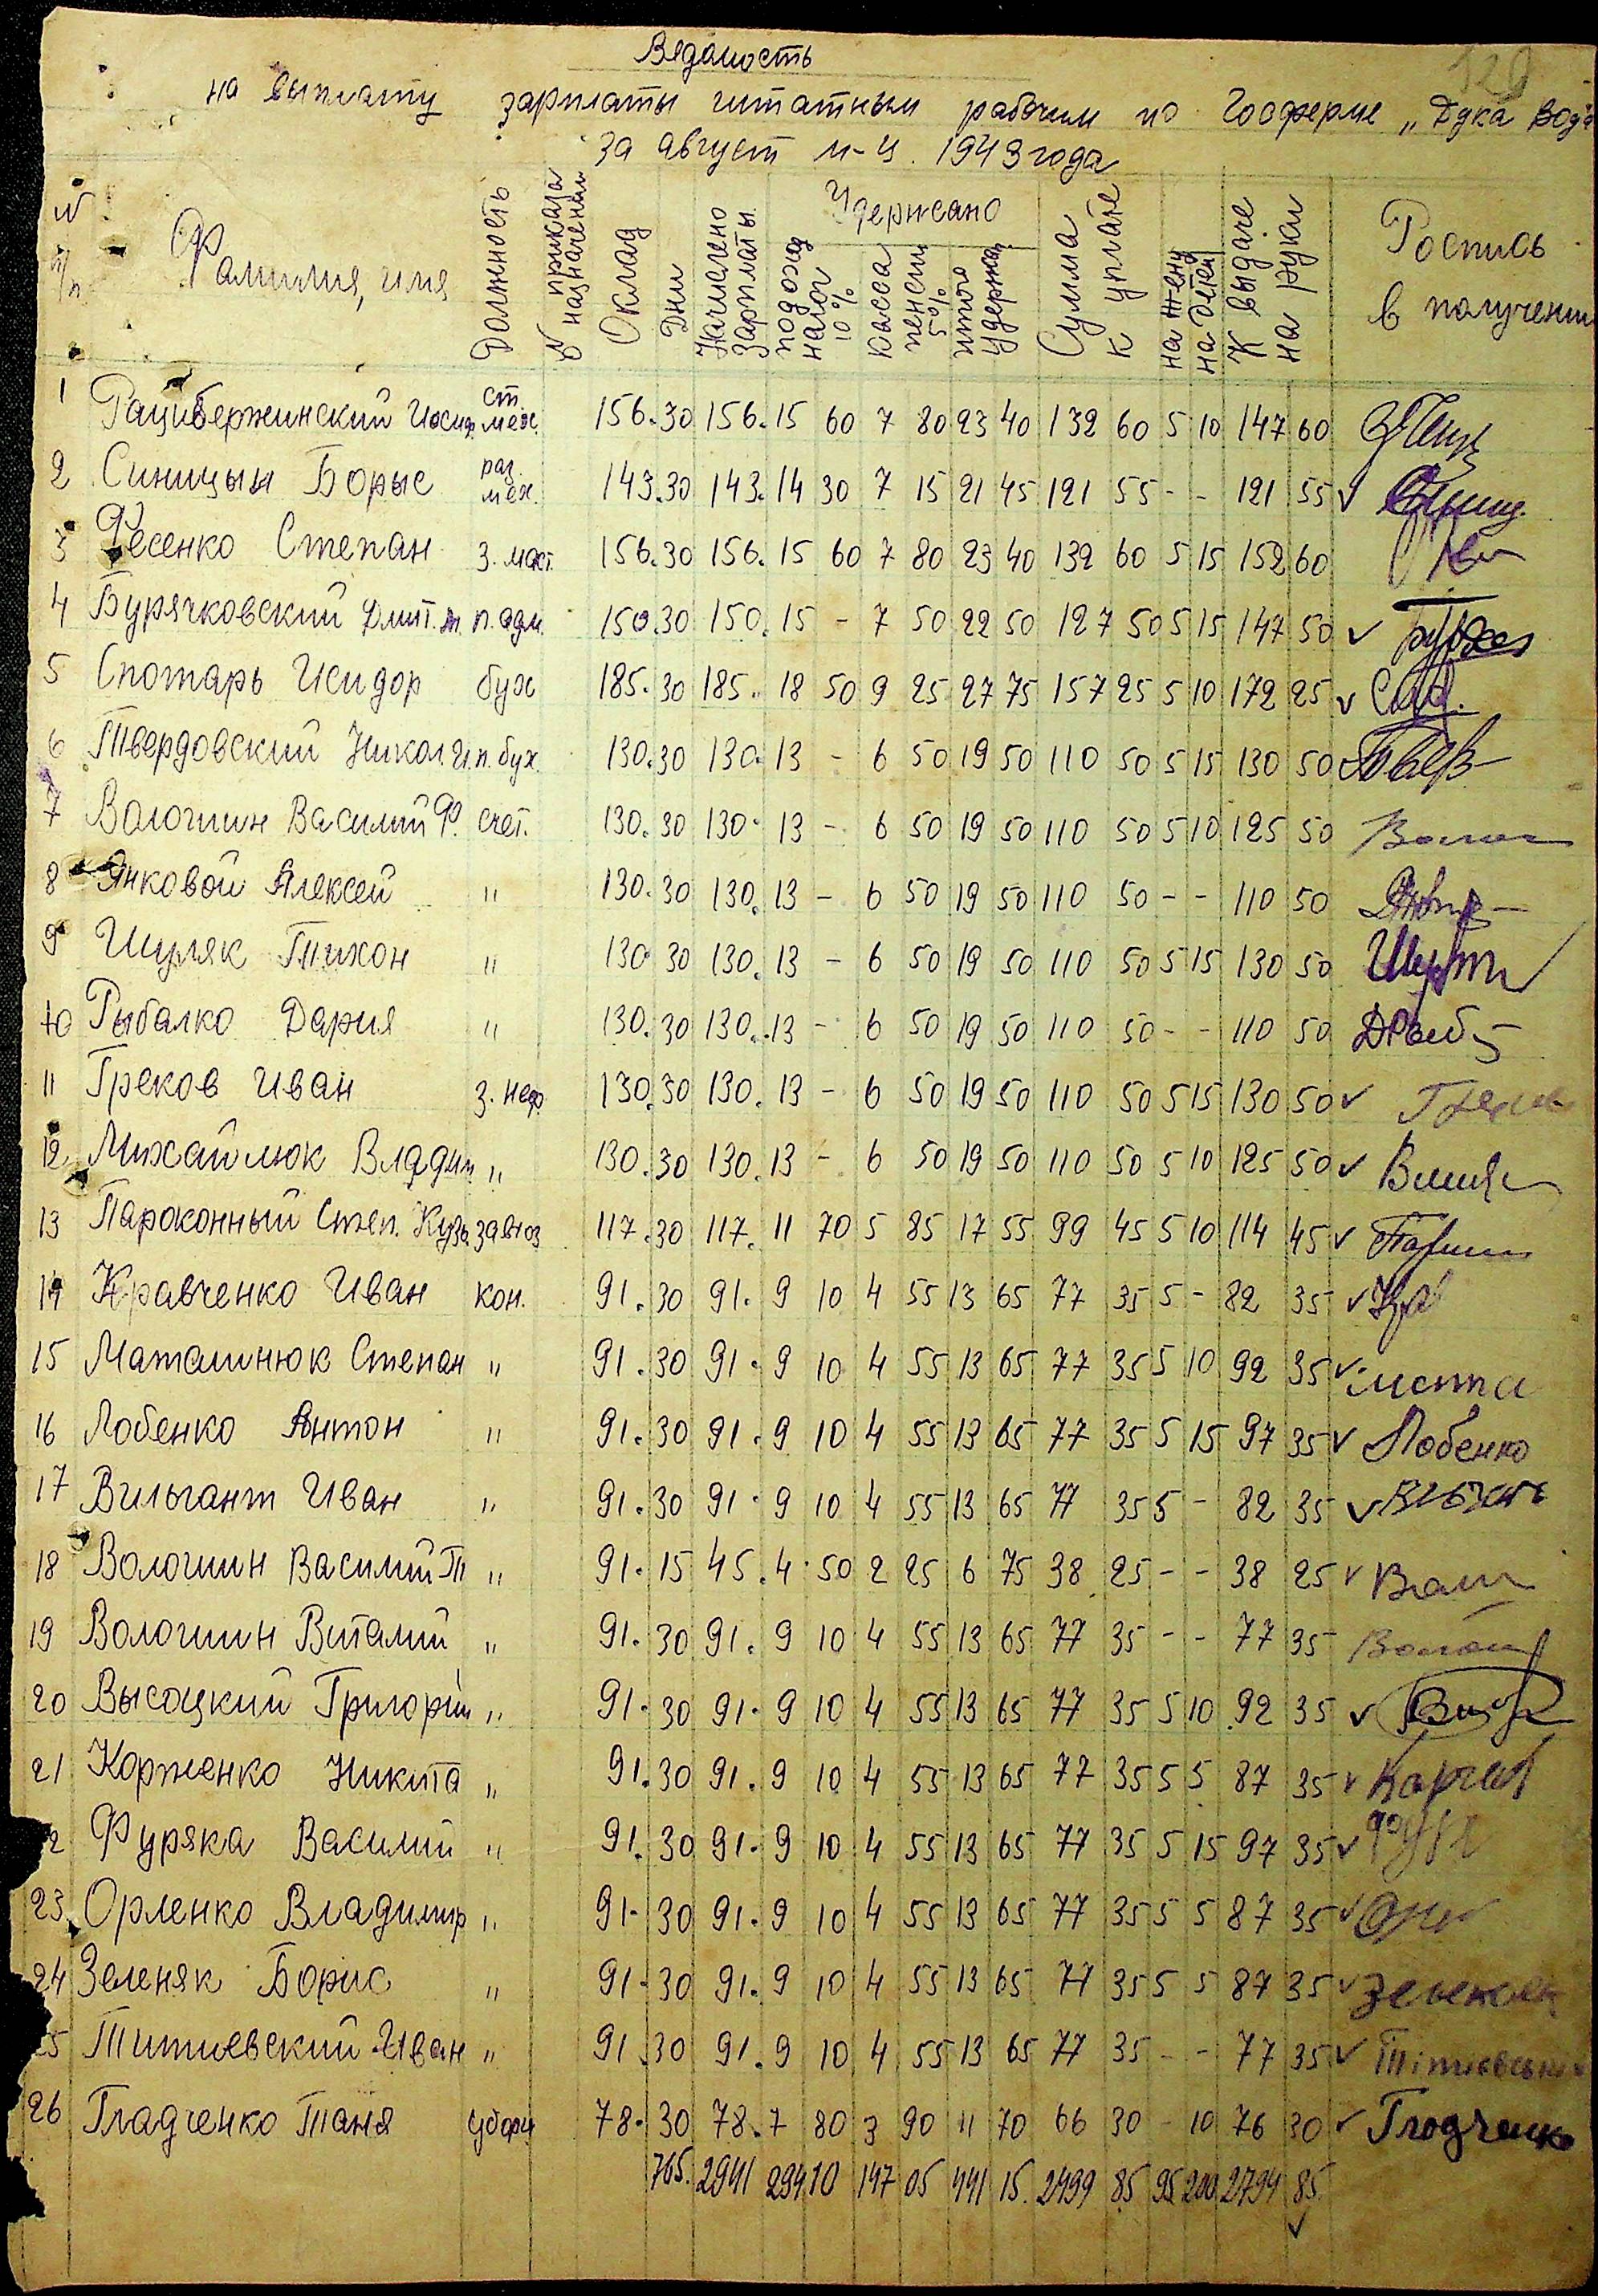 Вядомость
на выплату зарплаты штатным рабочим по Госферме „Дука Вода
за август м-ц. 1943 года
N п/п
Фамилия, имя
Должность
N приказа назначении
Оклад
Дни
Начислено зарплаты
Удержано
подоход налог 10%
касса пенсии 5%
итого удержа.
Сумма к уплате
на жену
на детей
К выдаче на руки
Роспись в получении
1 Рацибержинский Иосиф. ст. мех. 156. 30 156. 15 60 7 80 23 40 132 60 5 10 147 60
2 Синицын Борыс раз. мех. 143. 30 143. 14 30 7 15 21 45 121 55 - - 121 55 ✓
3 Фесенко Степан з. маст. 156. 30 156. 15 60 7 80 23 40 132 60 5 15 152 60
4 Бурячковский Дмит. п. адм. 150. 30 150. 15 - 7 50 22 50 127 50 5 15 147 50 ✓
5 Спотарь Исидор бух 185. 30 185. 18 50 9 25 27 75 157 25 5 10 172 25 ✓
6 Твердовский Никол. И. п. бух. 130. 30 130. 13 - 6 50 19 50 110 50 5 15 130 50
7 Волошин Василий Ф. счет. 130. 30 130. 13 - 6 50 19 50 110 50 5 10 125 50
8 Янковой Алексей " 130. 30 130. 13 - 6 50 19 50 110 50 - - 110 50
9 Шуляк Тихон " 130. 30 130. 13 - 6 50 19 50 110 50 5 15 130 50
10 Рыбалко Дария " 130. 30 130. 13 - 6 50 19 50 110 50 - - 110 50
11 Греков Иван з. неф. 130. 30 130. 13 - 6 50 19 50 110 50 5 15 130 50 ✓
12 Михайлюк Владим. " 130. 30 130. 13 - 6 50 19 50 110 50 5 10 125 50 ✓
13 Пароконный Степ. Кузь. завхоз 117. 30 117. 11 70 5 85 17 55 99 45 5 10 114 45 ✓
14 Кравченко Иван кон. 91. 30 91. 9 10 4 55 13 65 77 35 5 - 82 35 ✓
15 Маталинюк Степан " 91. 30 91. 9 10 4 55 13 65 77 35 5 10 92 35 ✓
16 Лобенко Антон " 91. 30 91. 9 10 4 55 13 65 77 35 5 15 97 35 ✓ Лобенко
17 Вильгант Иван " 91. 30 91. 9 10 4 55 13 65 77 35 5 - 82 35 ✓
18 Волошин Василий Т " 91. 15 45. 4. 50 2 25 6 75 38 25 - - 38 25 ✓
19 Волошин Виталий " 91. 30 91. 9 10 4 55 13 65 77 35 - - 77 35
20 Высоцкий Григорий " 91. 30 91. 9 10 4 55 13 65 77 35 5 10 92 35 ✓
21 Корженко Никита " 91. 30 91. 9 10 4 55 13 65 77 35 5 5 87 35 ✓
2 Фуряка Василий " 91. 30 91. 9 10 4 55 13 65 77 35 5 15 97 35 ✓
23 Орленко Владимир " 91. 30 91. 9 10 4 55 13 65 77 35 5 5 87 35 ✓
24 Зеленяк Борис " 91. 30 91. 9 10 4 55 13 65 77 35 5 5 87 35 ✓
25 Титиевский Иван " 91 30 91. 9 10 4 55 13 65 77 35 - - 77 35 ✓
26 Гладченко Таня уборщ 78. 30 78. 7 80 3 90 11 70 66 30 - 10 76 30 ✓ Гладченко
765. 2941 294 10 147 05 441 15. 2499 85 95 200 2794 85.
✓